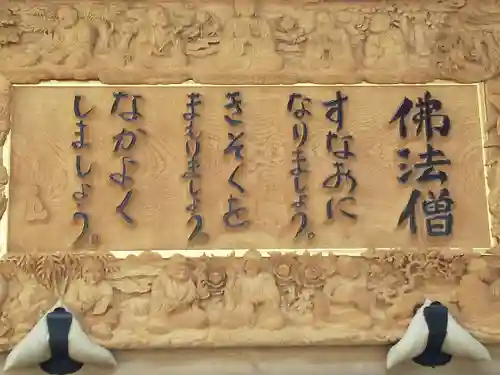 佛法僧
すなおに
なりましょう。
きそくを
まもりましょう。
なかよく
しましょう。